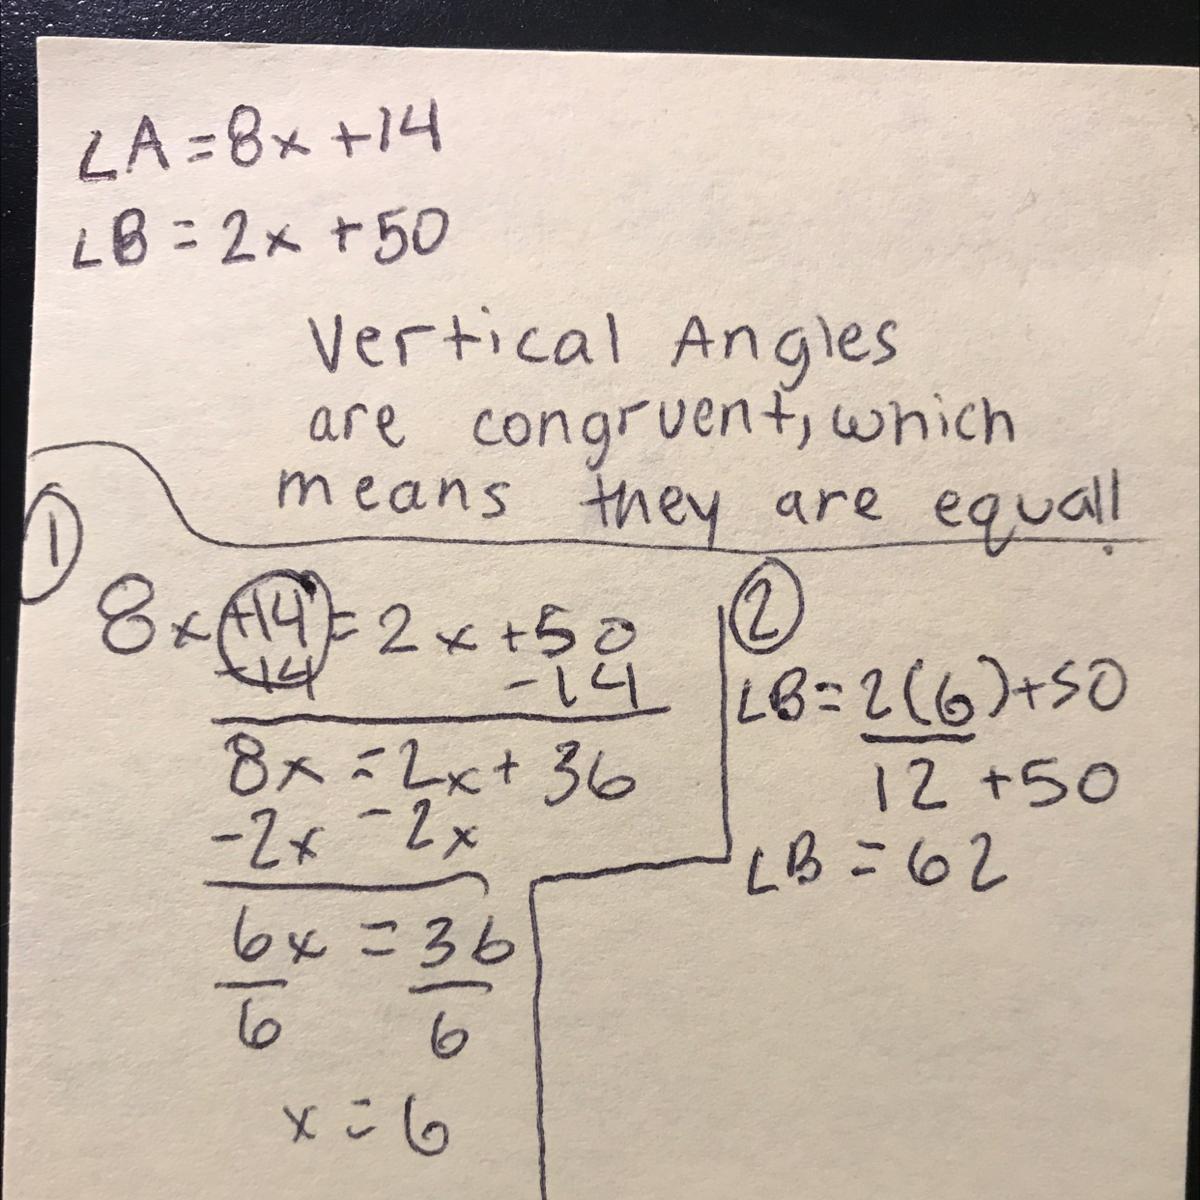 ∠A=8x+14
∠B=2x+50
Vertical Angles
are congruent, which
means they are equal!
①
8x+14=2x+50
-14 -14
8x=2x+36
-2x -2x
6x=36
6 6
x=6
②
∠B=2(6)+50
12+50
∠B=62